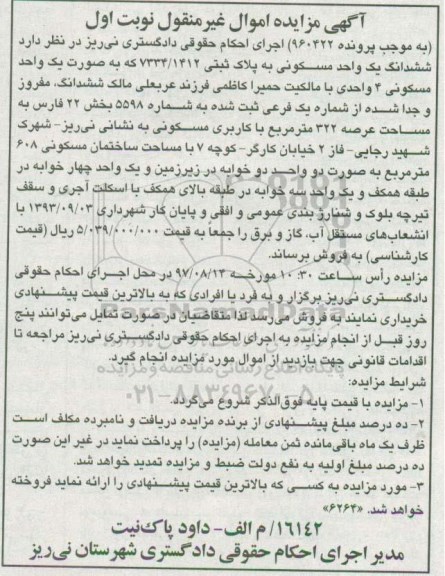 آگهی مزایده اموال غیرمنقول نوبت اول
(به موجب پرونده ۹۶۰۴۲۲) اجرای احکام حقوقی دادگستری نی‌ریز در نظر دارد
ششدانگ یک واحد مسکونی به پلاک ثبتی ۷۲۳۴/۱۴۱۲ که به صورت یک واحد
مسکونی ۴ واحدی با مالکیت حمیرا کاظمی فرزند عربعلی مالک ششدانگ، مفروز
و جدا شده از شماره یک فرعی ثبت شده به شماره ۵۵۹۸ بخش ۲۲ فارس به
مساحت عرصه ۳۲۲ مترمربع با کاربری مسکونی به نشانی نی‌ریز- شهرک
شهید رجایی- فاز ۲ خیابان کارگر- کوچه ۷ با مساحت ساختمان مسکونی ۶۰۸
مترمربع به صورت دو واحد دو خوابه در زیرزمین و یک واحد چهار خوابه در
طبقه همکف و یک واحد سه خوابه در طبقه بالای همکف با اسکلت آجری و سقف
تیرچه بلوک و شناژر بندی عمومی و افقی و پایان کار شهرداری ۱۳۹۳/۰۹/۰۳ با
انشعاب‌های مستقل آب، گاز و برق را جمعا به قیمت ۵/۰۳۹/۰۰۰/۰۰۰ ریال (قیمت
کارشناسی) به فروش برساند.
مزایده رأس ساعت ۱۰:۳۰ مورخه ۹۷/۰۸/۱۳ در محل اجرای احکام حقوقی
دادگستری نی‌ریز برگزار و به فرد یا افرادی که به بالاترین قیمت پیشنهادی
خریداری نمایند به فروش می‌رسد لذا متقاضیان در صورت تمایل می‌توانند پنج
روز قبل از انجام مزایده به اجرای احکام حقوقی دادگستری نی‌ریز مراجعه تا
اقدامات قانونی جهت بازدید از اموال مورد مزایده انجام گیرد.
شرایط مزایده:
۱- مزایده با قیمت پایه فوق‌الذکر شروع می‌گردد.
۲- ده درصد مبلغ پیشنهادی از برنده مزایده دریافت و نامبرده مکلف است
ظرف یک ماه باقی‌مانده ثمن معامله (مزایده) را پرداخت نماید در غیر این صورت
ده درصد مبلغ اولیه به نفع دولت ضبط و مزایده تمدید خواهد شد.
۳- مورد مزایده به کسی که بالاترین قیمت پیشنهادی را ارائه نماید فروخته
خواهد شد. «۶۲۶۴»
۱۶۱۴۲/ م الف- داود پاک‌نیت
مدیر اجرای احکام حقوقی دادگستری شهرستان نی‌ریز